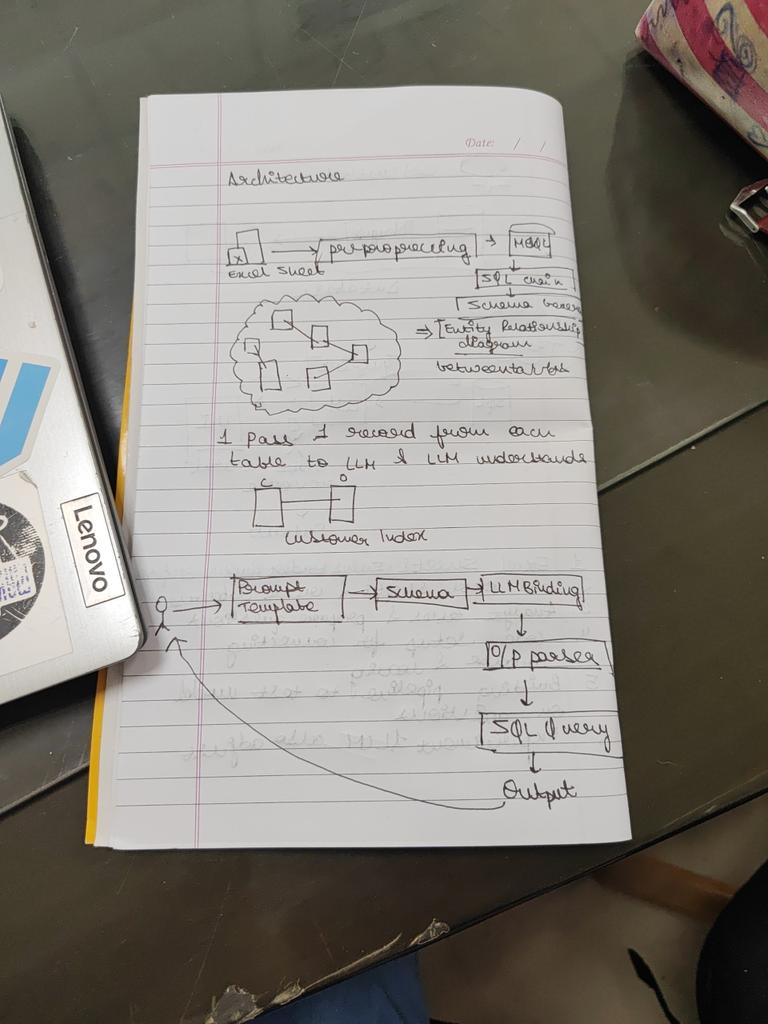 Date: / /
Architecture
x
Excel Sheet
SQL chain
Schema
Entity Relationship
diagram
1 Pass 1 record from each
table to LLM & LLM understands
C O
Customer Index
Prompt
Template
Schema
LLM Binding
O/P parser
SQL Query
Output
Lenovo